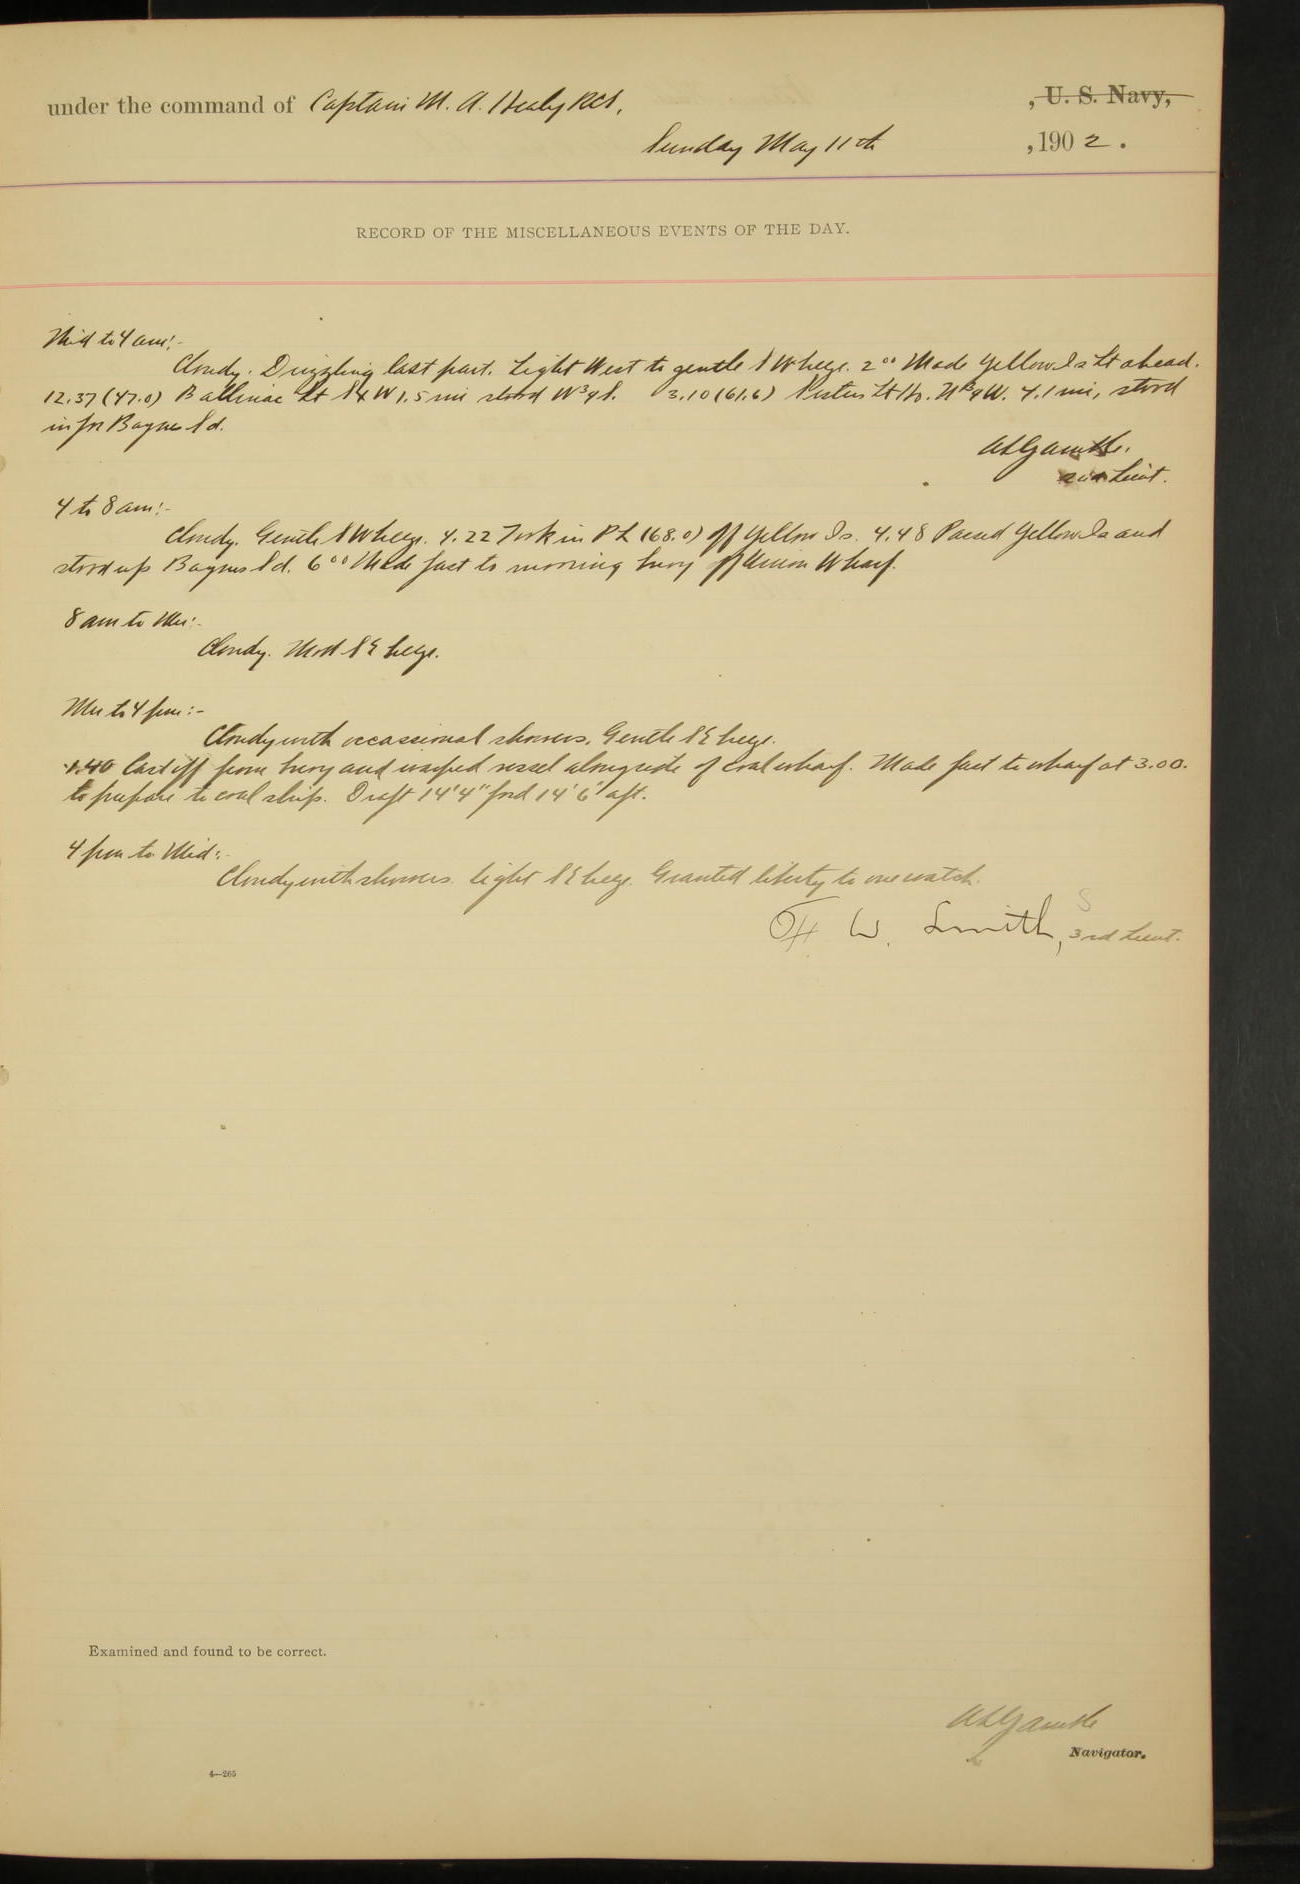 under the command of Captain M. A. Healy RCS, , U. S. Navy,
Sunday May 11th , 1902.
RECORD OF THE MISCELLANEOUS EVENTS OF THE DAY.
Mid to 4 am:-
Cloudy. Drizzling last part. Light West to gentle SW breeze. 2.00 Made Yellow Is Lt ahead.
12.37 (47.0) Ballinac Lt SxW 1.5 mi stood W3/4S. 3.10 (61.6) Sisters Lt Ho. 4.1 mi, stood
in for Baynes Sd.
A L Gamble.
2nd Lieut.
4 to 8 am:-
Cloudy. Gentle SW breeze. 4.22 Took in P L (68.0) off Yellow Is. 4.48 Passed Yellow Is and
stood up Baynes Sd. 6.00 Made fast to mooring buoy off Union Wharf.
8 am to Mer:-
Cloudy. Mod SE breeze.
Mer to 4 pm:-
Cloudy with occassional showers. Gentle SE breeze.
1.40 Cast off from buoy and warped vessel alongside of coal wharf. Made fast to wharf at 3.00.
to prepare to coal ship. Draft 14'4" ford 14'6" aft.
4 pm to Mid:-
Cloudy with showers. Light SE breeze. Granted liberty to one watch.
W. Smith, 3rd Lieut.
Examined and found to be correct.
A L Gamble
Navigator.
4—265